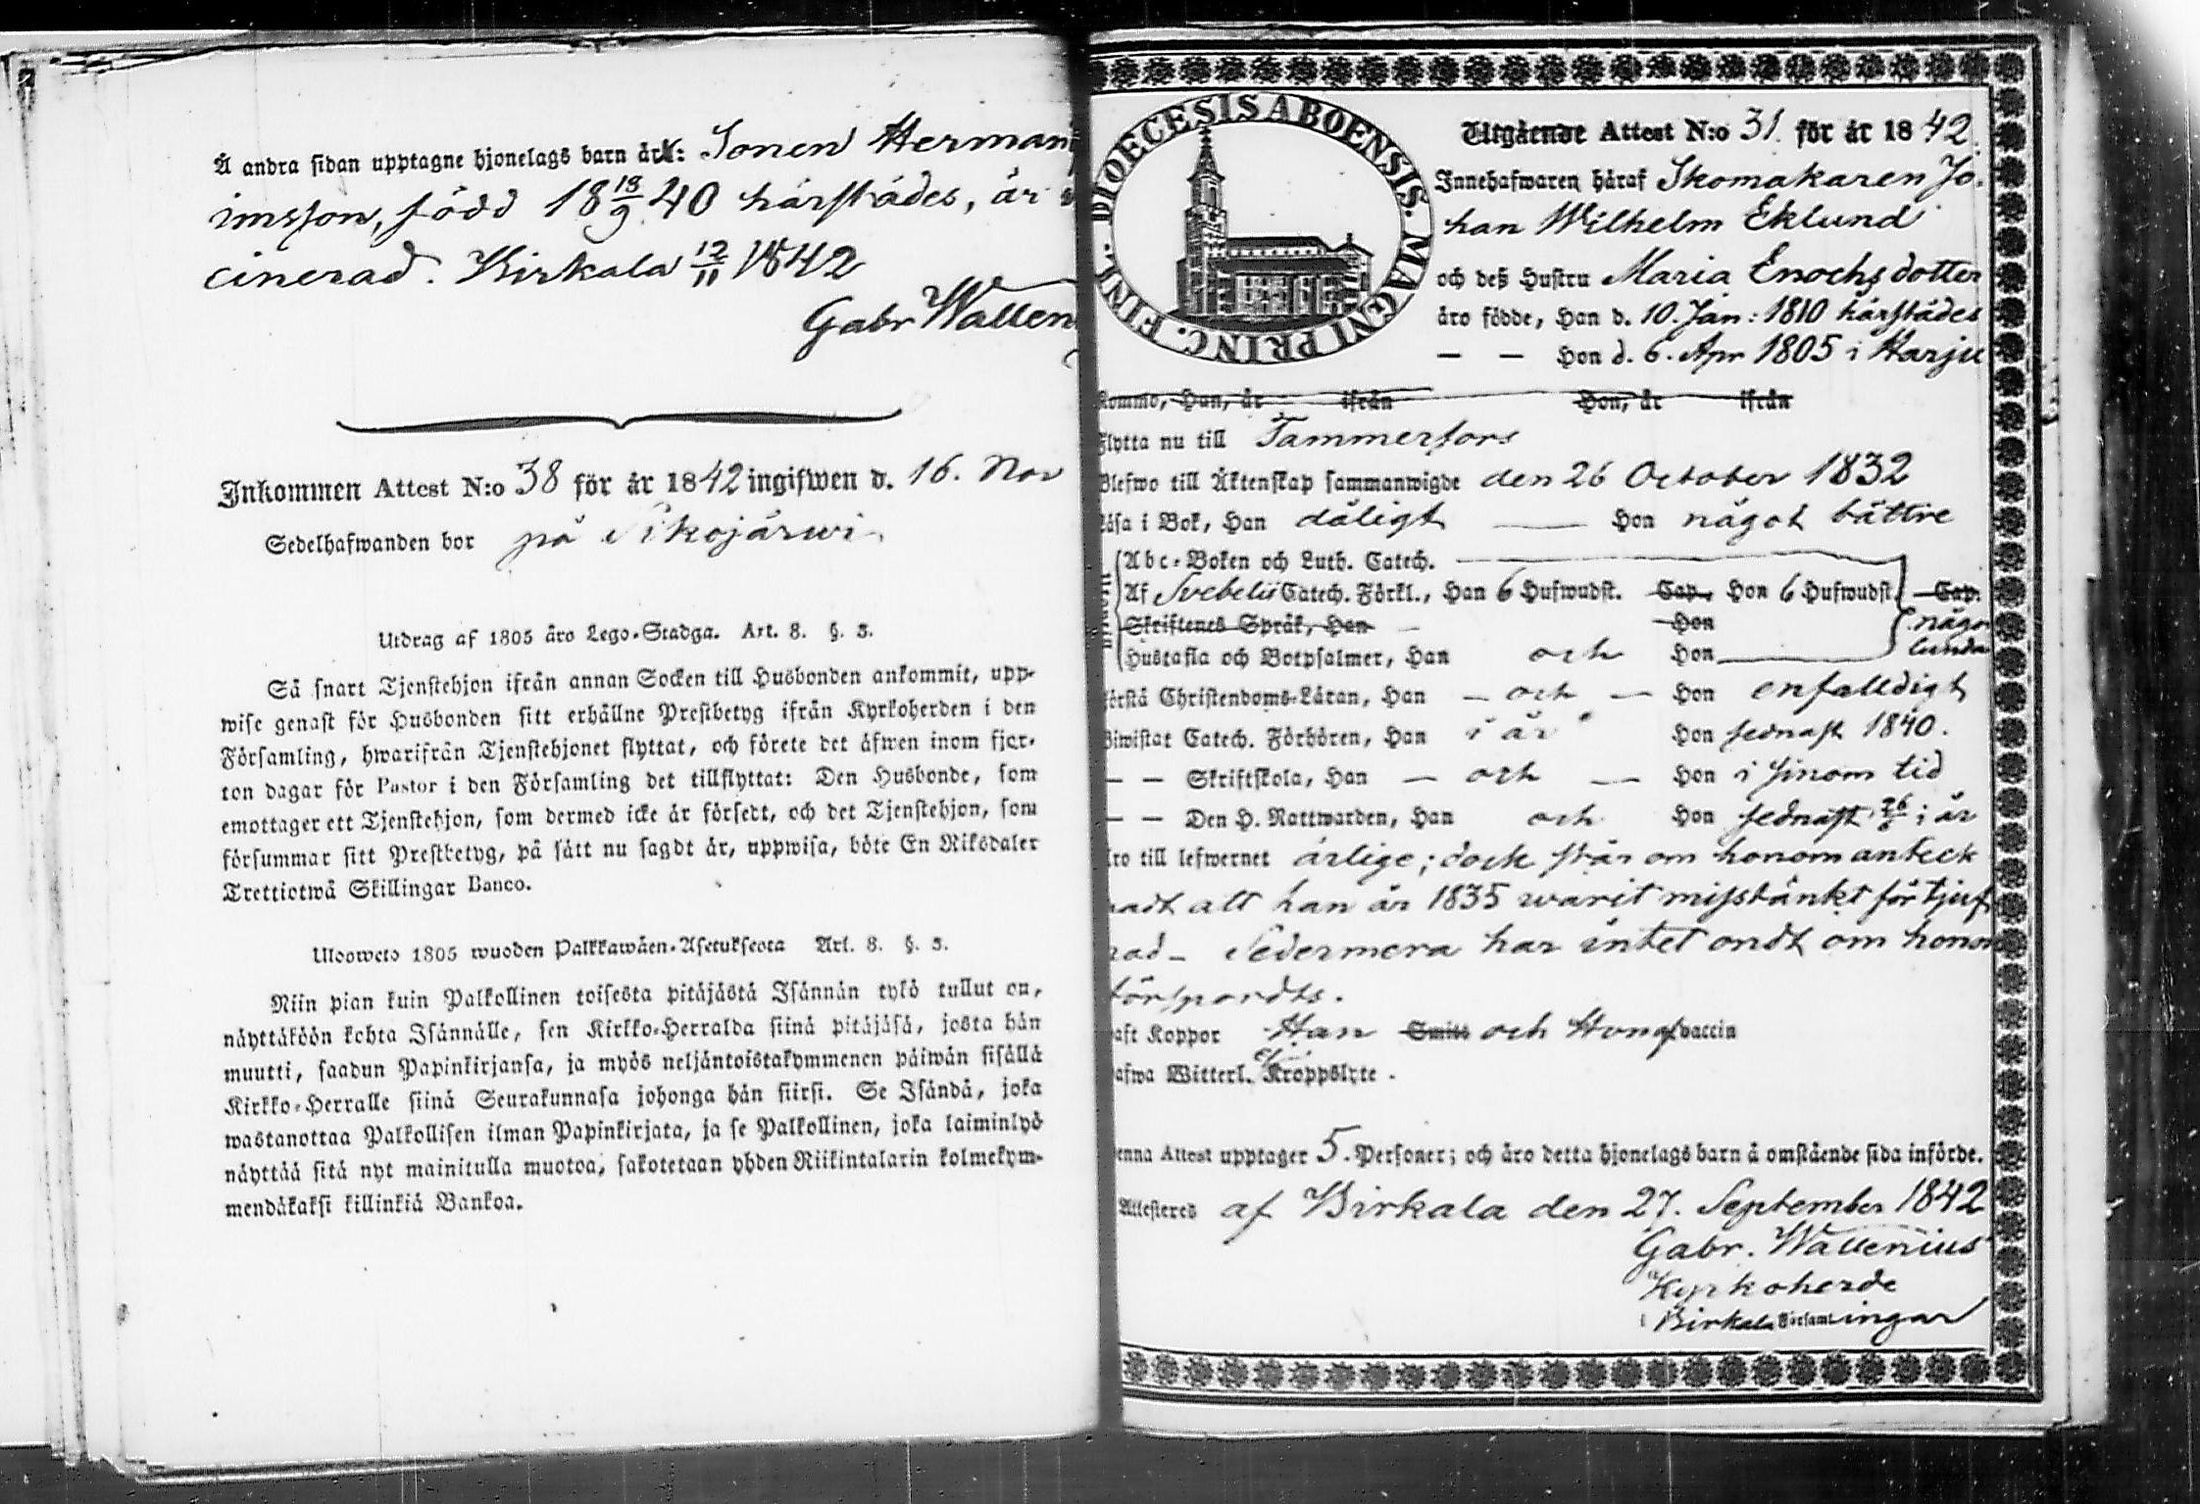 Å andra sidan upptagne hjonelags barn är: Sonen Herman
imsson, född 18 18/9 40 härstädes, är
cinerad. Birkala 12/11 1842
Gabr Wallen
Inkommen Attest N:o 38 för år 1842 ingifwen d. 16. Nov
Sedelhafwanden bor på
Utdrag af 1805 års Lego-Stadga. Art. 8. §. 3.
Så snart Tjenstehjon ifrån annan Socken till Husbonden ankommit, upp-
wise genast för Husbonden sitt erhållne Prestbetyg ifrån Kyrkoherden i den
Församling, hwarifrån Tjenstehjonet flyttat, och förete det äfwen inom fjor-
ton dagar för Pastor i den Församling det tillflyttat: Den Husbonde, som
emottager ett Tjenstehjon, som dermed icke är försedt, och det Tjenstehjon, som
försummar sitt Prestbetyg, på sätt nu sagdt är, uppwisa, böte En Riksdaler
Trettiotwå Skillingar Banco.
Uloswets 1805 wuoden Palkkawäen-Asetuksesta Art. 8. §. 3.
Niin pian kuin Palkollinen toisesta pitäjästä Isännän tykö tullut on,
näyttäköön kohta Isännälle, sen Kirkko-Herralda siinä pitäjäsä, josta hän
muutti, saadun Papinkirjansa, ja myös neljäntoistakymmenen päiwän sisällä
Kirkko-Herralle siinä Seurakunnasa johonga hän siirsi. Se Isändä, joka
wastanottaa Palkollisen ilman Papinkirjata, ja se Palkollinen, joka laiminlyö
näyttää sitä nyt mainitulla muotoa, sakotetaan yhden Riikintalarin kolmekym-
mendäkaksi killinkiä Bankoa.
DIOECESIS ABOENSIS. MAGNI PRINC. FINL.
Utgående Attest N:o 31. för år 1842.
Innehafwaren häraf Skomakaren Jo-
han Wilhelm Eklund
och deß Hustru Maria Enochsdotter
äro födde, Han d. 10. Jan: 1810 härstädes
— — Hon d. 6. Apr 1805 i Harju
komme, Han, år ifrån Hon, år ifrån
flytta nu till Tammerfors
Blefwo till Äktenskap sammanwigde den 26 October 1832
läsa i Bok, Han dåligt — Hon något bättre
Abc-Boken och Luth. Catech.
Af Svebelii Catech. Förkl., Han 6 Hufwudst. Cap., Hon 6 Hufwudst. Cap.
Skriftenes Språk, Han — Hon någor
Hustafla och Botpsalmer, Han och Hon lunda
förstå Christendoms-Läran, Han — och — Hon enfalldigt
Biwistat Catech. Förhören, Han i år Hon sednast 1840.
— — Skriftskola, Han — och — Hon i sinom tid
— — Den H. Nattwarden, Han och Hon sednast i år
äro till lefwernet ärlige; dock står om honom anteck
nadt att han år 1835 warit misstänkt för tjuf
nad – Sedermera har intet ondt om honom
förspordts.
haft Koppor Han Smitt och Hon af vaccin
hafwa Witterl. ej Kroppslyte.
Denna Attest upptager 5. Personer; och äro detta hjonelags barn å omstående sida införde.
Attesteres af Birkala den 27. September 1842
Gabr. Wallenius
Kyrkoherde
i Birkala Församlingar